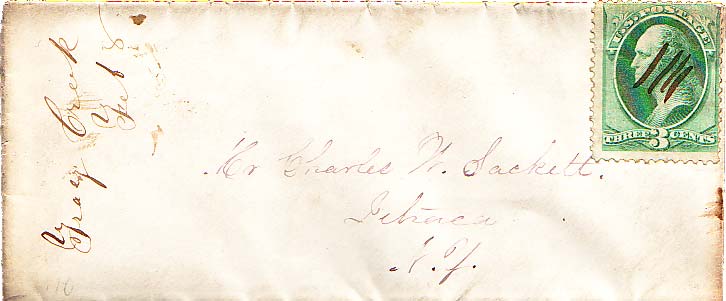 U.S. POSTAGE
THREE 3 CENTS
Creek
Feb 8
Mr Charles W. Sackett.
Ithaca
N.Y.